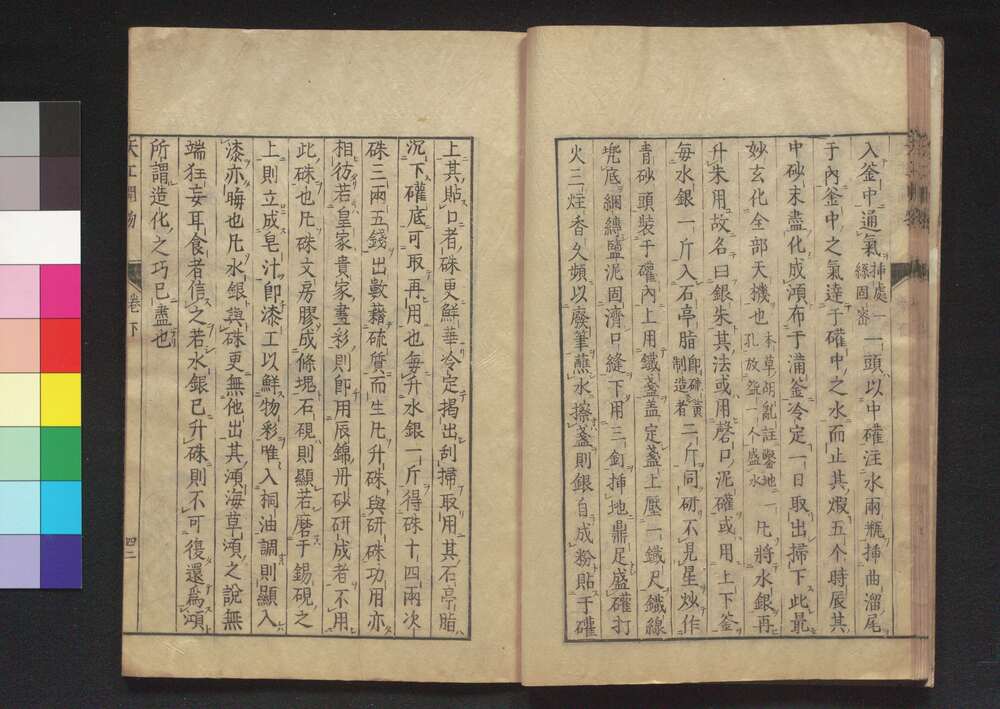 入釜中通氣挿處一絲固密一頭以中礶注水兩瓶挿曲溜尾
于內釜中之氣達于礶中之水而止其煅五个時辰其
中砂末盡化成澒布于滿釜冷定一日取出掃下此最
妙玄化全部天機也本草胡亂註鑿地一孔放盌一个盛水凡將水銀再
升朱用故名曰銀朱其法或用磬口泥礶或用上下釜
每水銀一斤入石亭脂卽硫黃制造者二斤同研不見星炒作
青砂頭裝于礶內上用鐵盞蓋定盞上壓一鐵尺鐵線
兜底綑縛鹽泥固濟口縫下用三釘挿地鼎足盛礶打
火三炷香久頻以廢筆蘸水擦盞則銀自成粉貼于礶
上其貼口者硃更鮮華冷定揭出刮掃取用其石亭脂
沉下礶底可取再用也每升水銀一斤得硃十四兩次
硃三兩五錢出數藉硫質而生凡升硃與研硃功用亦
相彷若皇家貴家畫彩則卽用辰錦丹砂研成者不用
此硃也凡硃文房膠成條塊石硯則顯若磨于錫硯之
上則立成皂汁卽漆工以鮮物彩唯入桐油調則顯入
漆亦晦也凡水銀與硃更無他出其澒海草澒之說無
端狂妄耳食者信之若水銀已升硃則不可復還爲澒
所謂造化之巧已盡也
天工開物
卷下
四二